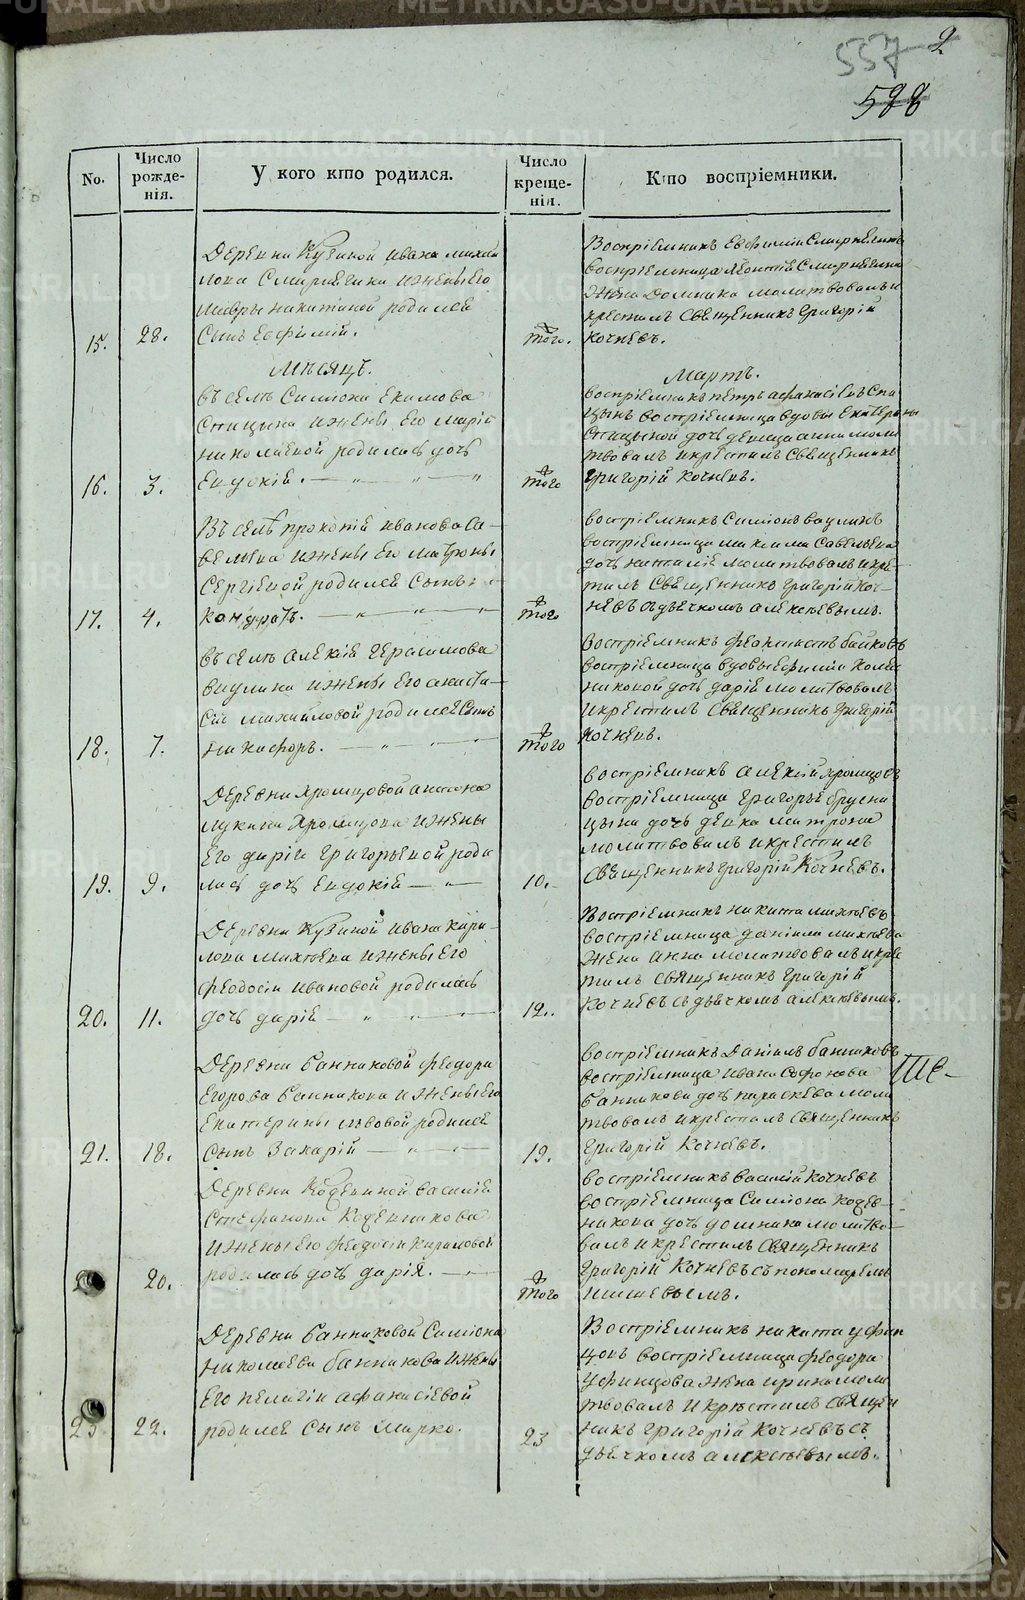 557 2
588
No.
Число рожде-нія.
У кого кто родился.
Число креще-нія.
Кто воспріемники.
Деревни Кузиной Ивана Михаи
лова Смирнягина и жены его
Мавры Никитиной родился
15. 28. сынъ Евфимій.
Воспріемникъ Евфимій Смирнягинъ
воспріемница Леонтія Смирнягина
жена Домника молитвовалъ и
крестилъ священникъ Григорій
того. Кочневъ.
Мѣсяцъ.
Мартъ.
Въ селѣ Симіона Екимова
Спицына и жены его Маріи
Николаевой родилась дочь
16. 3. Евдокія.
воспріемникъ Петръ Афанасіевъ Спи
цынъ воспріемница вдовы Екатерины
Спицыной дочь девица Анна моли
твовалъ и крестилъ священникъ
того Григорій Кочневъ.
Въ селѣ Прокопія Иванова Са-
вельева и жены его Матроны
Сергіевой родился сынъ
17. 4. Кондратъ.
воспріемникъ Симіонъ Ваулинъ
воспріемница Максима Савельева
дочь Наталія молитвовалъ и кре-
тилъ священникъ Григорій Коч-
того невъ съ дьячкомъ Алексѣевымъ.
въ селѣ Алексія Герасимова
Ваулина и жены его Анаста-
сіи Михайловой родился сынъ
18. 7. Никифоръ.
воспріемникъ Феоктистъ Байковъ
воспріемница вдовы Ефиміи Колес
никовой дочь Дарія молитвовалъ
и крестилъ священникъ Григорій
того Кочневъ.
Деревни Хромцовой Антона
Лукина Хромцова и жены
его Даріи Григорьевой роди
19. 9. лась дочь Евдокія
воспріемникъ Алексій Хромцовъ
воспріемница Григорья Брусни
цына дочь девка Матрона
молитвовалъ и крестилъ
10. священникъ Григорій Кочневъ.
Деревни Кузиной Ивана Кири-
лова Михѣева и жены его
Феодосіи Ивановой родилась
20. 11. дочь Дарія
Воспріемникъ Никита Михѣевъ
воспріемница Даніила Михѣева
жена Анна молитвовалъ и крес
тилъ священникъ Григорій
12. Кочневъ съ дьячкомъ Алексѣевымъ.
Деревни Банниковой Феодора
Егорова Банникова и жены его
Екатерины Львовой родился
21. 18. сынъ Захарій
воспріемникъ Даніилъ Банниковъ
воспріемница Ивана Софонова
Банникова дочь Параскева моли
твовалъ и крестилъ священникъ
19. Григорій Кочневъ.
Деревни Кожевиной Василія
Стефанова Кожевникова
и жены его Феодосіи Кириловой
20. родилась дочь Дарія.
воспріемникъ Василій Кочневъ
воспріемница Симіона Кожев-
никова дочь Домника молитво-
валъ и крестилъ священникъ
того Григорій Кочневъ съ пономаремъ
Деревни Банниковой Симіона
Николаева Банникова и жены
его Пелагіи Афанасіевой
23 22. родился сынъ Марко.
Воспріемникъ Никита Уфин
цовъ воспріемница Феодора
Уфинцова жена Ирина моли
твовалъ и крестилъ священ
23 никъ Григорій Кочневъ съ
дьячкомъ Алексѣевымъ.
METRIKI.GASO-URAL.RU